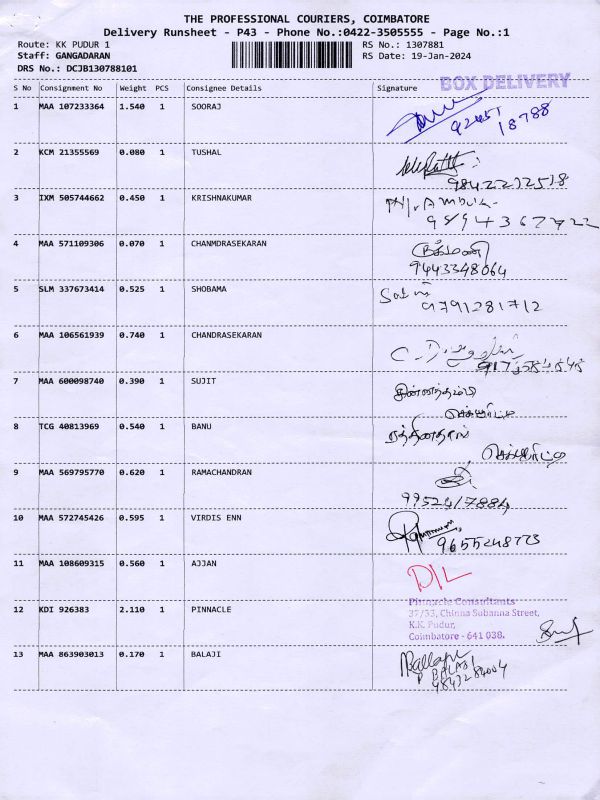 THE PROFESSIONAL COURIERS, COIMBATORE
Delivery Runsheet - P43 - Phone No.:0422-3505555 - Page No.:1
Route: KK PUDUR 1
RS No.: 1307881
Staff: GANGADARAN
RS Date: 19-Jan-2024
DRS No.: DCJB130788101
BOX DELIVERY
S No Consignment No Weight PCS Consignee Details Signature
1 MAA 107233364 1.540 1 SOORAJ
92451
18788
2 KCM 21355569 0.080 1 TUSHAL
9842272518
3 IXM 505744662 0.450 1 KRISHNAKUMAR
4 MAA 571109306 0.070 1 CHANMDRASEKARAN
ருக்மணி
9443348064
5 SLM 337673414 0.525 1 SHOBAMA
9791281712
6 MAA 106561939 0.740 1 CHANDRASEKARAN
7 MAA 600098740 0.390 1 SUJIT
8 TCG 40813969 0.540 1 BANU
9 MAA 569795770 0.620 1 RAMACHANDRAN
9952417884
10 MAA 572745426 0.595 1 VIRDIS ENN
9655248773
11 MAA 108609315 0.560 1 AJJAN
D/L
12 KDI 926383 2.110 1 PINNACLE
Pinnacle Consultants
37/33, Chinna Subanna Street,
K.K. Pudur,
Coimbatore - 641 038.
13 MAA 863903013 0.170 1 BALAJI
P BALAJI
9843284004